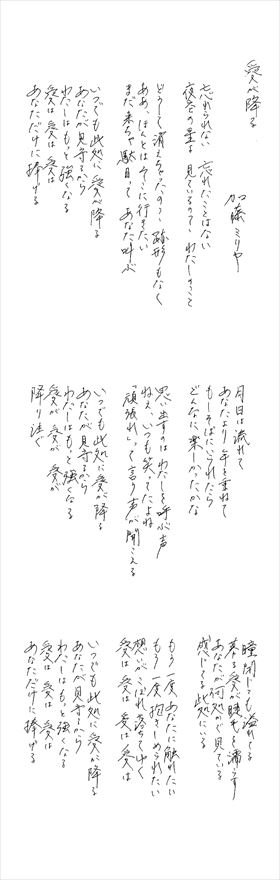 愛が降る
加藤ミリヤ
忘れられない 忘れたことはない
夜空の星は見ているの？って わたしのこと
どうして消えちゃったの？ 跡形もなく
ああ、ほんとはそこに行きたい
まだ来ちゃ駄目って あなた叫ぶ
いつでも此処に愛が降る
あなたが見守るから
わたしはもっと強くなる
愛は 愛は 愛は
あなただけに捧げる
月日は流れて
あなたより年を重ねて
もしそばにいられたら
どんなに楽しかったかな
思い出すのは わたしを呼ぶ声
ねえ、いつも笑ってたよね
「頑張れ」って言う声が聞こえる
いつでも此処に愛が降る
あなたが見守るから
わたしはもっと強くなる
愛が 愛が 愛が
降り注ぐ
瞳閉じても溢れてる
募る愛が睫毛を濡らす
あなたが何処かで見ている
感じてる此処にいる
もう一度 あなたに触れたい
もう一度 抱きしめられたい
想いがこぼれ落ちてゆく
愛は 愛は 愛は 愛は
いつでも此処に愛が降る
あなたが見守るから
わたしはもっと強くなる
愛は 愛は 愛は
あなただけに捧げる